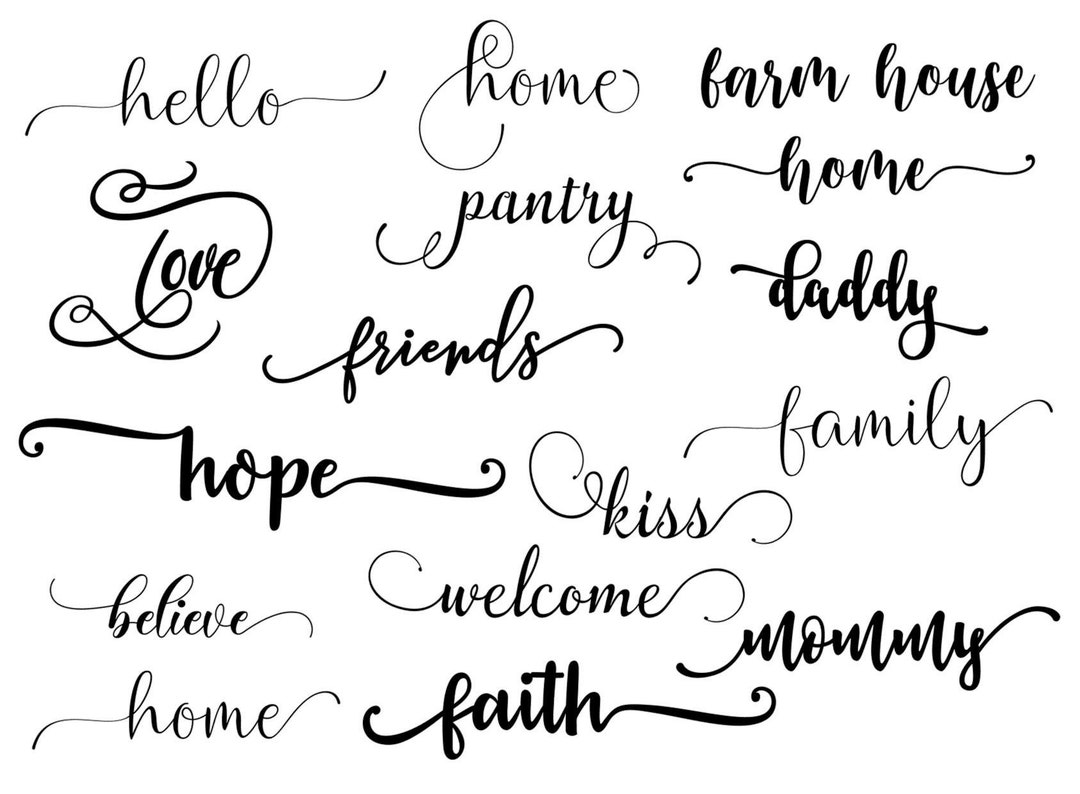 hello
home
farm house
home
pantry
Love
daddy
friends
family
hope
kiss
welcome
believe
mommy
home
faith